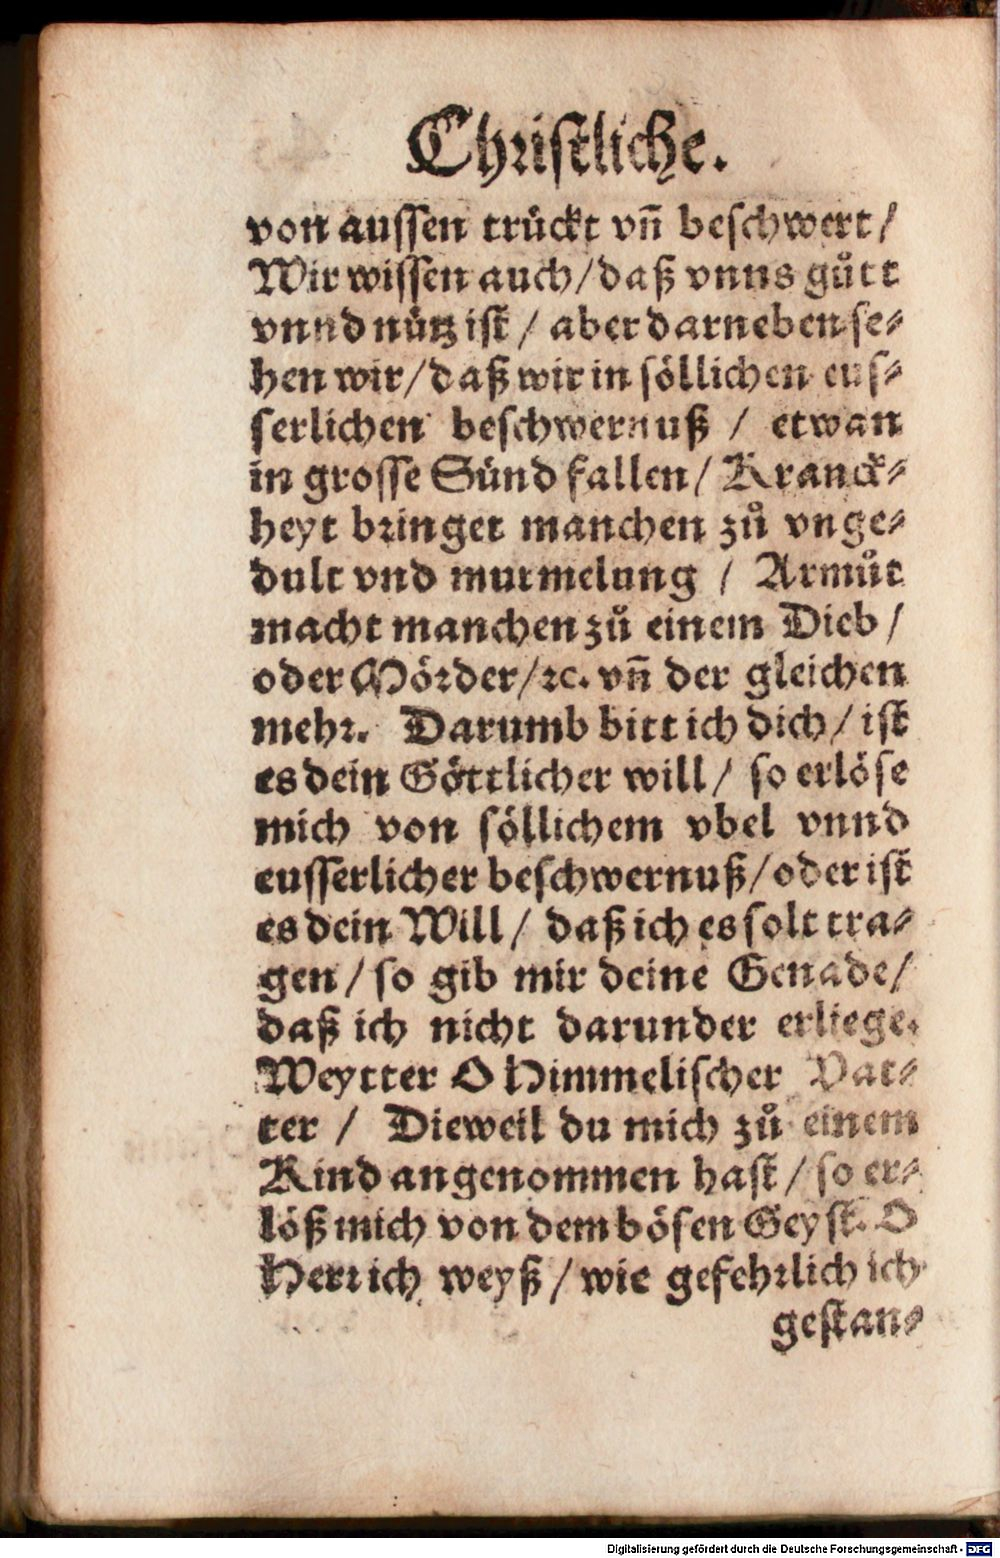 Chriſtliche.
von auſſen trückt vñ beſchwert/
Wir wiſſen auch/daß vnns gůtt
vnnd nütz iſt / aber darneben ſe⸗
hen wir/daß wir in ſöllichen euſ⸗
ſerlichen beſchwernuß / etwan
in groſſe Sünd fallen/ Kranck⸗
heyt bꝛinget manchen zů vnge⸗
dult vnd murmelung / Armůt
macht manchen zů einem Dieb /
oder Möꝛder/ꝛc. vñ der gleichen
mehꝛ. Darumb bitt ich dich/ iſt
es dein Göttlicher will/ ſo erlöſe
mich von ſöllichem vbel vnnd
euſſerlicher beſchwernuß/oder iſt
es dein Will/ daß ich es ſolt tra⸗
gen/ ſo gib mir deine Genade/
daß ich nicht darunder erliege.
Weytter O Himmeliſcher Vat⸗
ter / Dieweil du mich zů einem
Kind angenommen haſt/ ſo er⸗
löß mich von dem böſen Geyſt. O
Herꝛ ich weyß/ wie gefehꝛlich ich
geſtan⸗
Digitalisierung gefördert durch die Deutsche Forschungsgemeinschaft - DFG